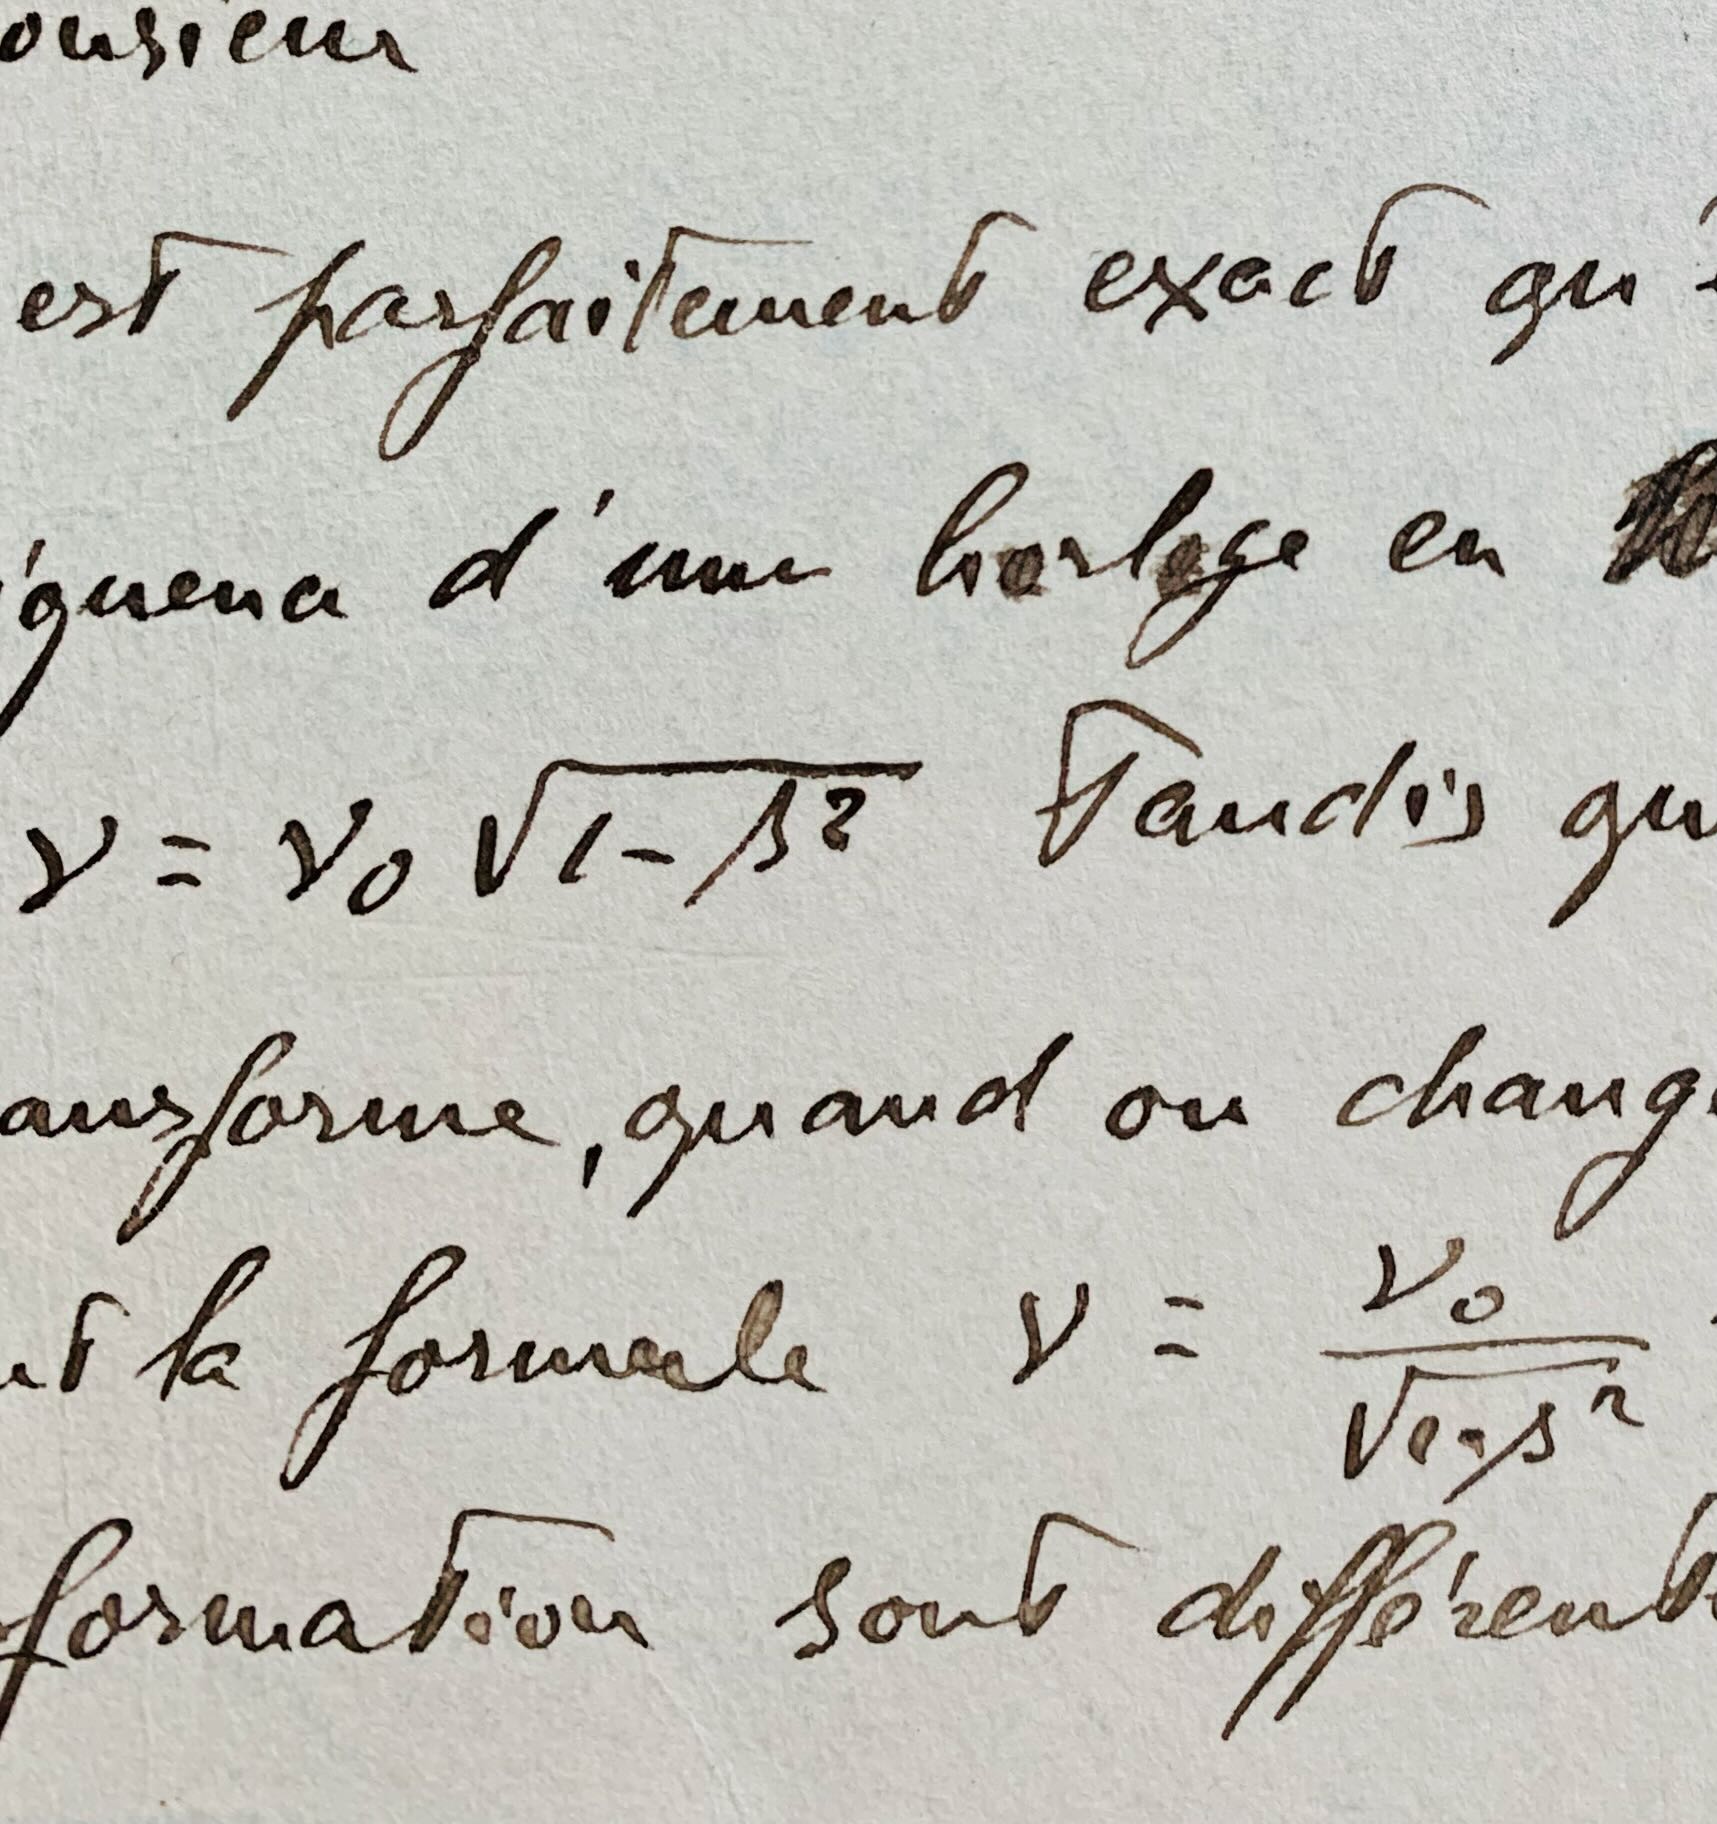 onsieur
est parfaitement exact qu'
équena d'une horloge en
ν = ν₀ √1-β² Tandis qu
ansforme, quand on change
nt la formule ν = ν₀ / √1-β²
formation sont différent